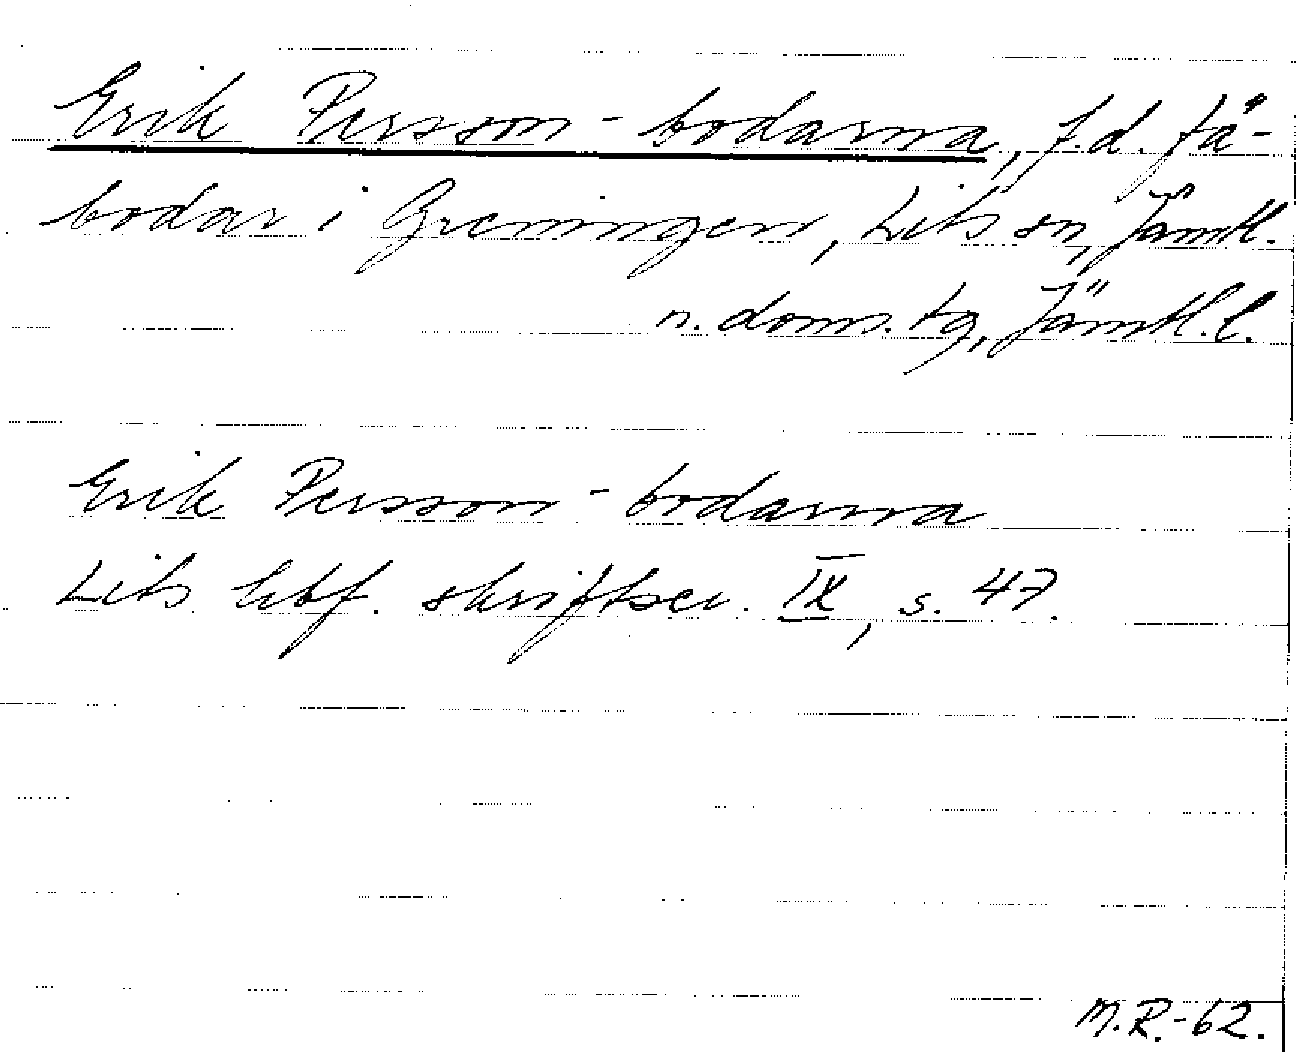 Erik Persson-bodarna, f.d. få-
bodar i Greningen, Lits sn, Jämtl.
n. doms. tg, Jämtl. l.
Erik Persson-bodarna
Lits hbf. skriftser. IX, s. 47.
M.R.-62.